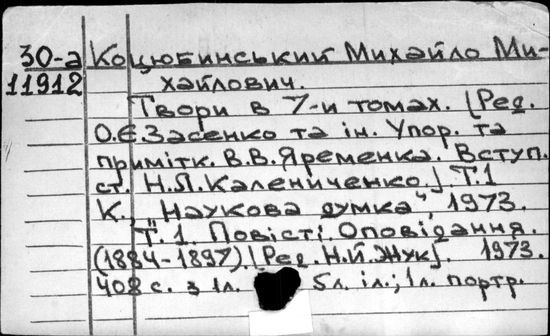 30-а Коцюбинський Михайло Ми-
11912 хайлович.
Твори в 7-и томах. [Ред.
О.Є.Засенко та ін. Упор. та
примітк. В.В.Яременка. Вступ.
ст. Н.Л.Калениченко.]. Т.1
К., "Наукова думка", 1973.
Т. 1. Повісті. Оповідання.
(1884-1897). [Ред. Н.Й.Жук]. 1973.
408 с. з іл. 5л. іл.; 1л. портр.